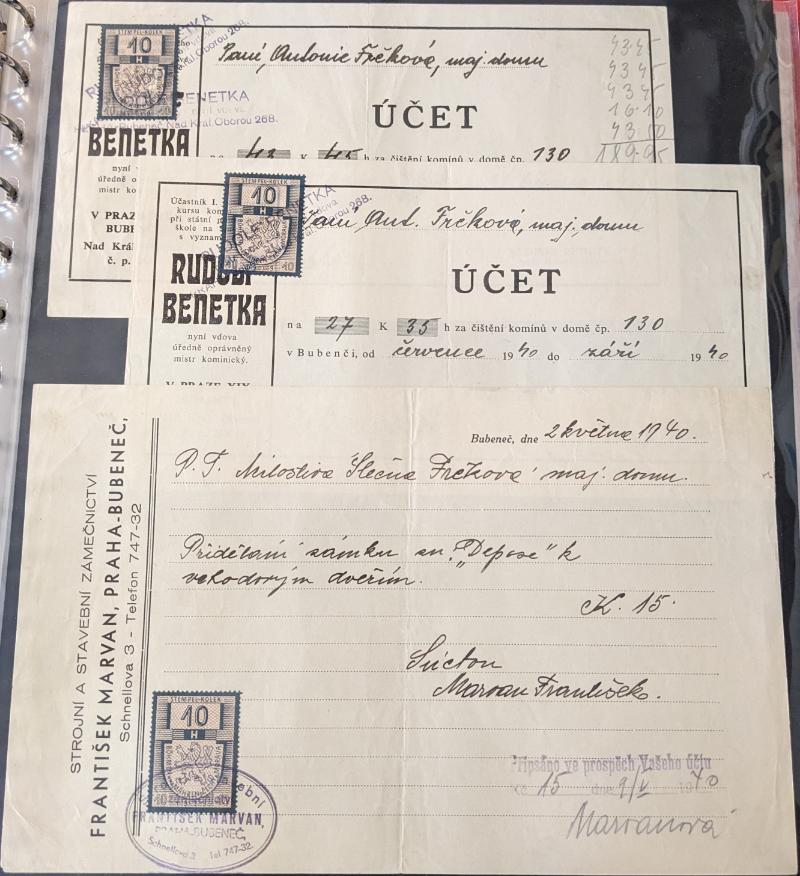 STEMPEL-KOLEK
10
H
Paní, Antonie Frčková, maj. domu
43.45
43.45
43.45
16.10
43.50
189.95
ÚČET
BENETKA
Bubeneč Nad Král. Oborou 268.
BENETKA
na 43 K 45 h za čištění kominů v domě čp. 130
nyní
úředně o
mistr kom
V PRAZ
BUBE
Nad Krá
č. p.
STEMPEL-KOLEK
10
H
10 10
Účastník I.
kursu kom
při státní
škole na
s vyznam
Paní Ant. Frčková, maj. domu
ÚČET
RUDOLF
BENETKA
nyní vdova
úředně oprávněný
mistr kominický.
V PRAZE XIX
na 27 K 35 h za čištění kominů v domě čp. 130
v Bubenči, od července 1940 do září 1940
STROJNÍ A STAVEBNÍ ZÁMEČNICTVÍ
FRANTIŠEK MARVAN, PRAHA-BUBENEČ,
Schnellova 3 - Telefon 747-32
Bubeneč, dne 2 května 1940.
P. T. Milostivá Slečna Frčková maj. domu.
Přidělaní zámku zn. „Depose" k
dveřím.
K. 15.
Súctou
Marvan František.
STEMPEL-KOLEK
10
H
FRANTIŠEK MARVAN,
PRAHA-BUBENEČ,
Schnellova 3 Tel 747-32.
Připsáno ve prospěch Vašeho účtu
Kč 15 dne 9/V 1940
Marvanová